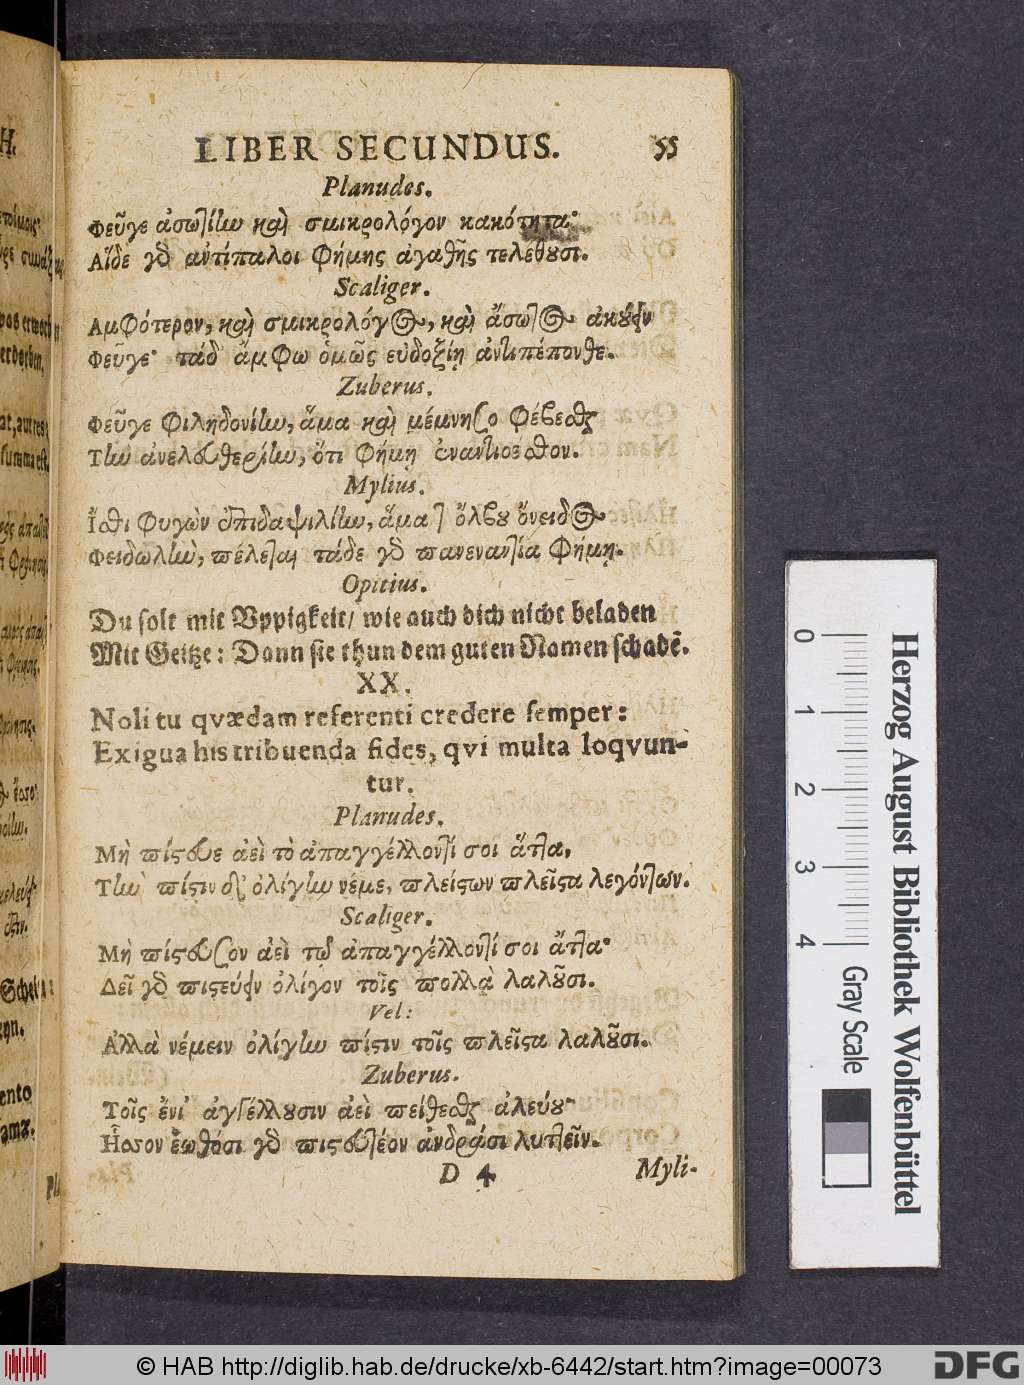 LIBER SECUNDUS. 55
Planudes.
Φεῦγε ἀσωτίην καὶ σμικρολόγον κακότητα·
Αἵδε γὸ ἀντίπαλοι φήμης ἀγαθῆς τελέθουσι.
Scaliger.
Ἀμφότερον, καὶ σμικρολόγος, καὶ ἄσωτος ἀκούειν
Φεῦγε· τάδ' ἄμφω ὁμῶς εὐδοξίῃ ἀντιπέπονθε.
Zuberus.
Φεῦγε φιληδονίην, ἅμα καὶ μέμνησο φέβεσθαι
Τὴν ἀνελευθερίην, ὅτι φήμῃ ἐναντιοέσθον.
Mylius.
Ἴσθι φυγὼν ἐπιδαψιλίην, ἅμα τ' ὄλβου ὄνειδος
Φειδωλὴν, πέλεται τάδε γὸ πανεναντία φήμῃ.
Opitius.
Du solt mit Vppigkeit/ wie auch dich nicht beladen
Mit Geitze: Dann sie thun dem guten Namen schadẽ.
XX.
Noli tu qvædam referenti credere semper:
Exigua his tribuenda fides, qvi multa loqvun-
tur.
Planudes.
Μὴ πίστευε ἀεὶ τὸ ἀπαγγέλλοντί σοι ἅττα,
Τὴν πίστιν δ' ὀλίγην νέμε, πλείστων πλεῖστα λεγόντων.
Scaliger.
Μὴ πίστευσον ἀεὶ τῷ ἀπαγγέλλοντί σοι ἄττα·
Δεῖ γὸ πιστεύειν ὀλίγον τοῖς πολλὰ λαλοῦσι.
Vel:
Ἀλλὰ νέμειν ὀλίγην πίστιν τοῖς πλεῖστα λαλοῦσι.
Zuberus.
Τοῖς ἔνι' ἀγγέλλουσιν ἀεὶ πείθεσθαι ἀλεύου·
Ἧσσον ἐωθόσι γὸ πιστευτέον ἀνδράσι λυττεῖν.
D 4 Myli-
0 1 2 3 4 Gray Scale
Herzog August Bibliothek Wolfenbüttel
© HAB http://diglib.hab.de/drucke/xb-6442/start.htm?image=00073
DFG